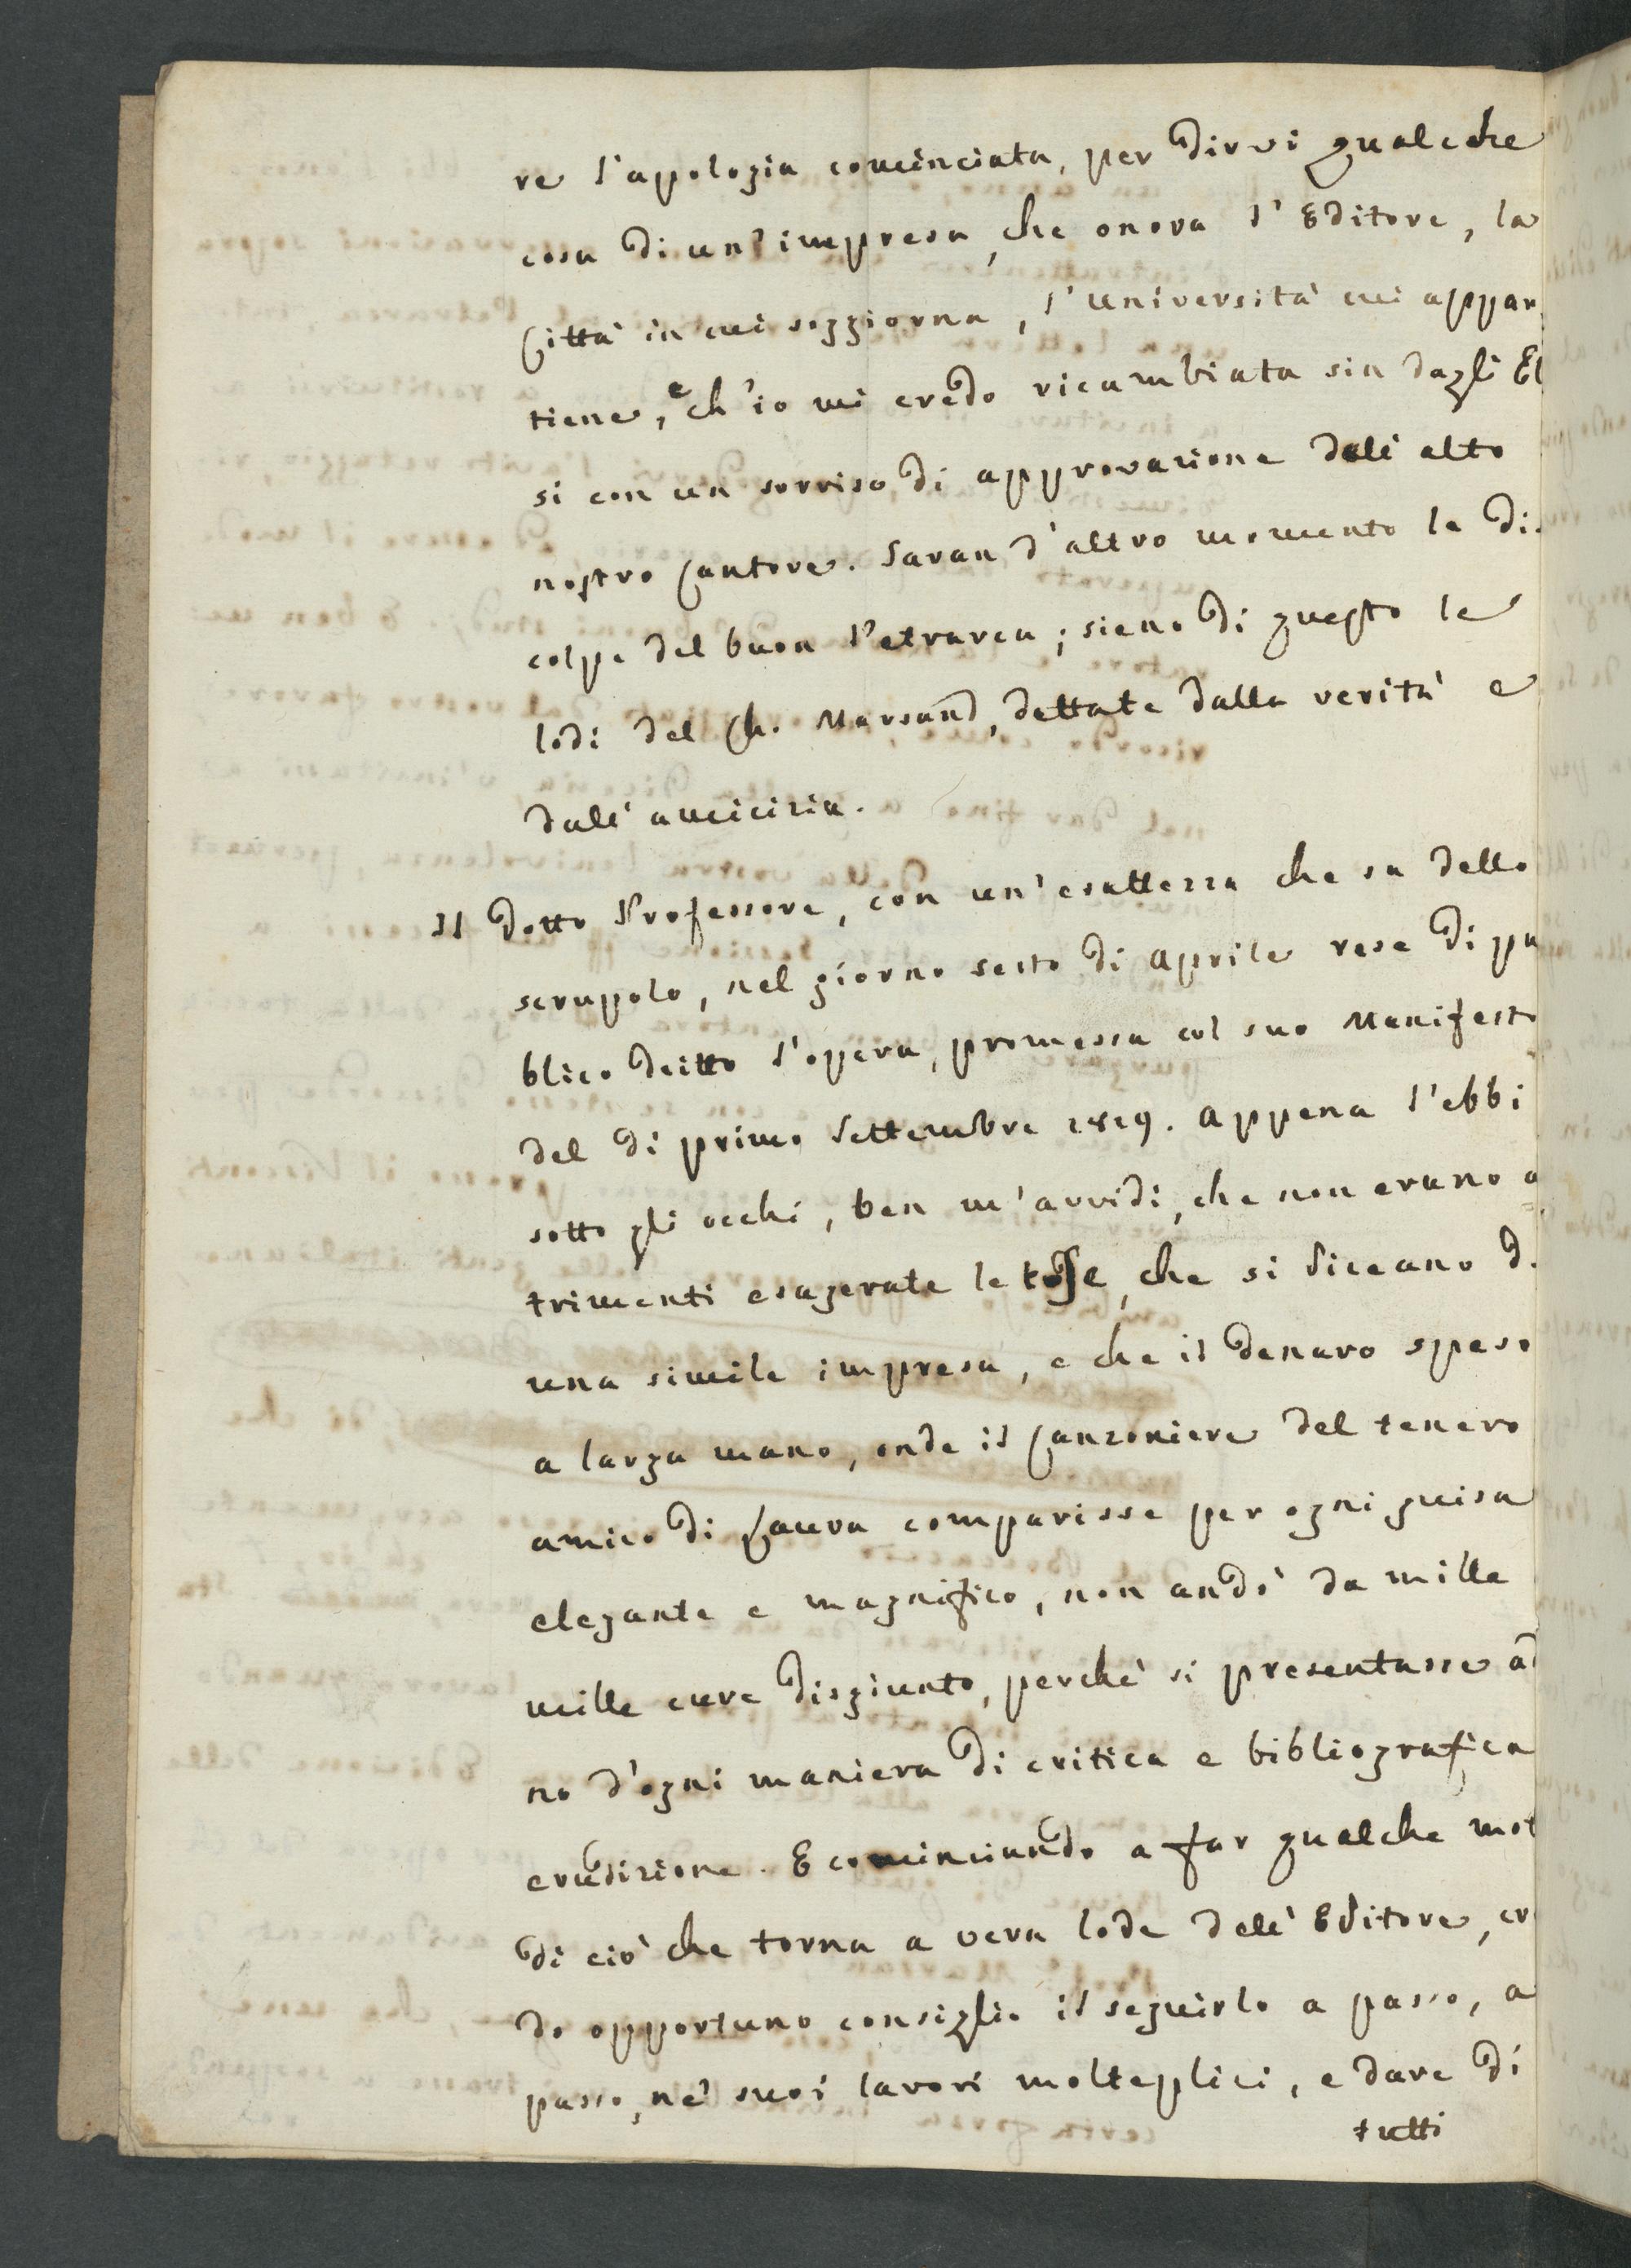 re l'apologia cominciata, per dirvi qualche
cosa di un'impresa, che onora l'Editore, la
Città in cui soggiorna, l'università cui appar
tiene, e ch'io mi credo ricambiata sin dagli El
si con un sorriso di approvazione dall'alto
nostro Cantore. Saran d'altro momento le di
colpe del buon Petrarca; sieno di questo le
lodi del Ch. Marsand, dettate dalla verità e
dall'amicizia.
Il dotto Professore, con un'esattezza che sa dello
scrupolo, nel giorno sesto di Aprile rese di pu
blico dritto l'opera, promessa col suo Manifesto
del dì primo Settembre 1819. Appena l'ebbi
sotto gli occhi, ben m'avvidi, che non erano a
trimenti esagerate le cose, che si diceano d
una simile impresa, e che il denaro speso
a larga mano, onde il Canzoniere del tenero
amico di Laura comparisse per ogni guisa
elegante e magnifico, non andò da mille
mille cure disgiunto, perchè si presentasse ad
no d'ogni maniera di critica e bibliografica
erudizione. E cominciando a far qualche mot
di ciò che torna a vera lode dell'Editore, cr
do opportuno consiglio il seguirlo a passo, a
passo, ne' suoi lavori molteplici, e dare di
tutti